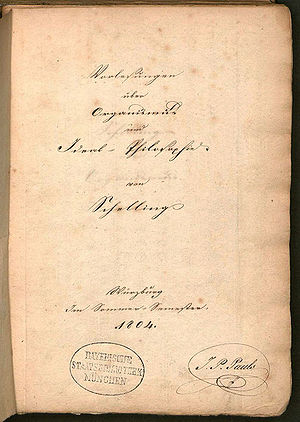 Vorlesungen
über
Organismus
und
Ideal-Philosophie.
von
Schelling
Würzburg
Im Sommer-Semester.
1804.
BAYERISCHE
STAATSBIBLIOTHEK
MÜNCHEN
J. P. Pauls